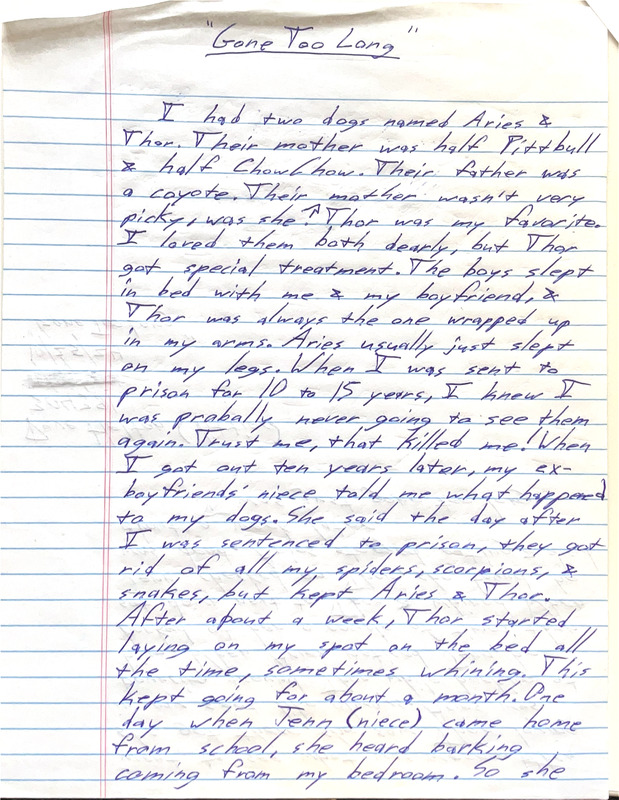 "Gone Too Long"
I had two dogs named Aries &
Thor. Their mother was half Pittbull
& half ChowChow. Their father was
a coyote. Their mother wasn't very
picky, was she? Thor was my favorite.
I loved them both dearly, but Thor
got special treatment. The boys slept
in bed with me & my boyfriend, &
Thor was always the one wrapped up
in my arms. Aries usually just slept
on my legs. When I was sent to
prison for 10 to 15 years, I knew I
was probally never going to see them
again. Trust me, that killed me! When
I got out ten years later, my ex-
boyfriends' niece told me what happened
to my dogs. She said the day after
I was sentenced to prison, they got
rid of all my spiders, scorpions, &
snakes, but kept Aries & Thor.
After about a week, Thor started
laying on my spot on the bed all
the time, sometimes whining. This
kept going for about a month. One
day when Jenn (niece) came home
from school, she heard barking
coming from my bedroom. So she